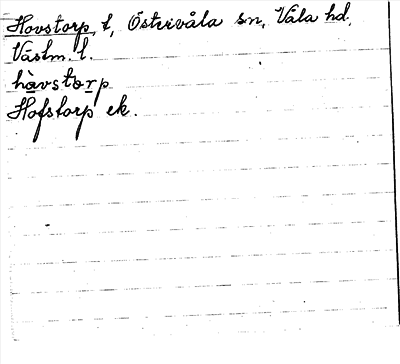 Hovstorp, t, Östervåla sn, Våla hd,
Västm. l.
håvstɷrp
Hofstorp ek.